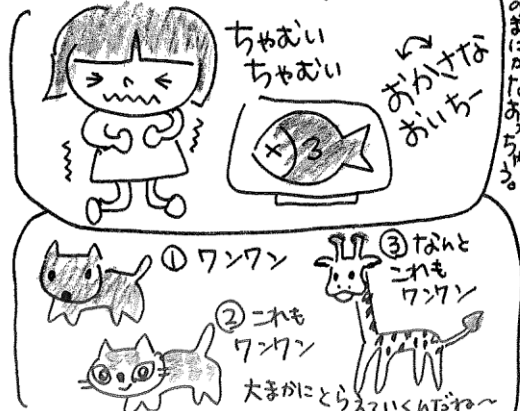 ちゃむい
ちゃむい
おかさな
おいちー
3
① ワンワン
② これも
ワンワン
③ なんと
これも
ワンワン
大まかにとらえていくんだね〜